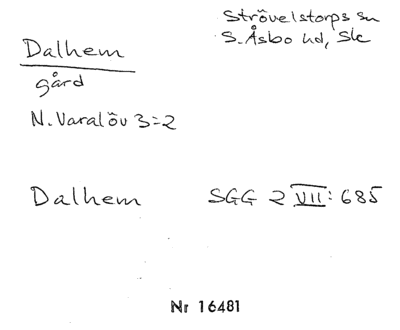 Strövelstorps sn
S. Åsbo hd, Sk
Dalhem
gård
N. Varalöv 3=2
Dalhem SGG 2 VII: 685
Nr 16481